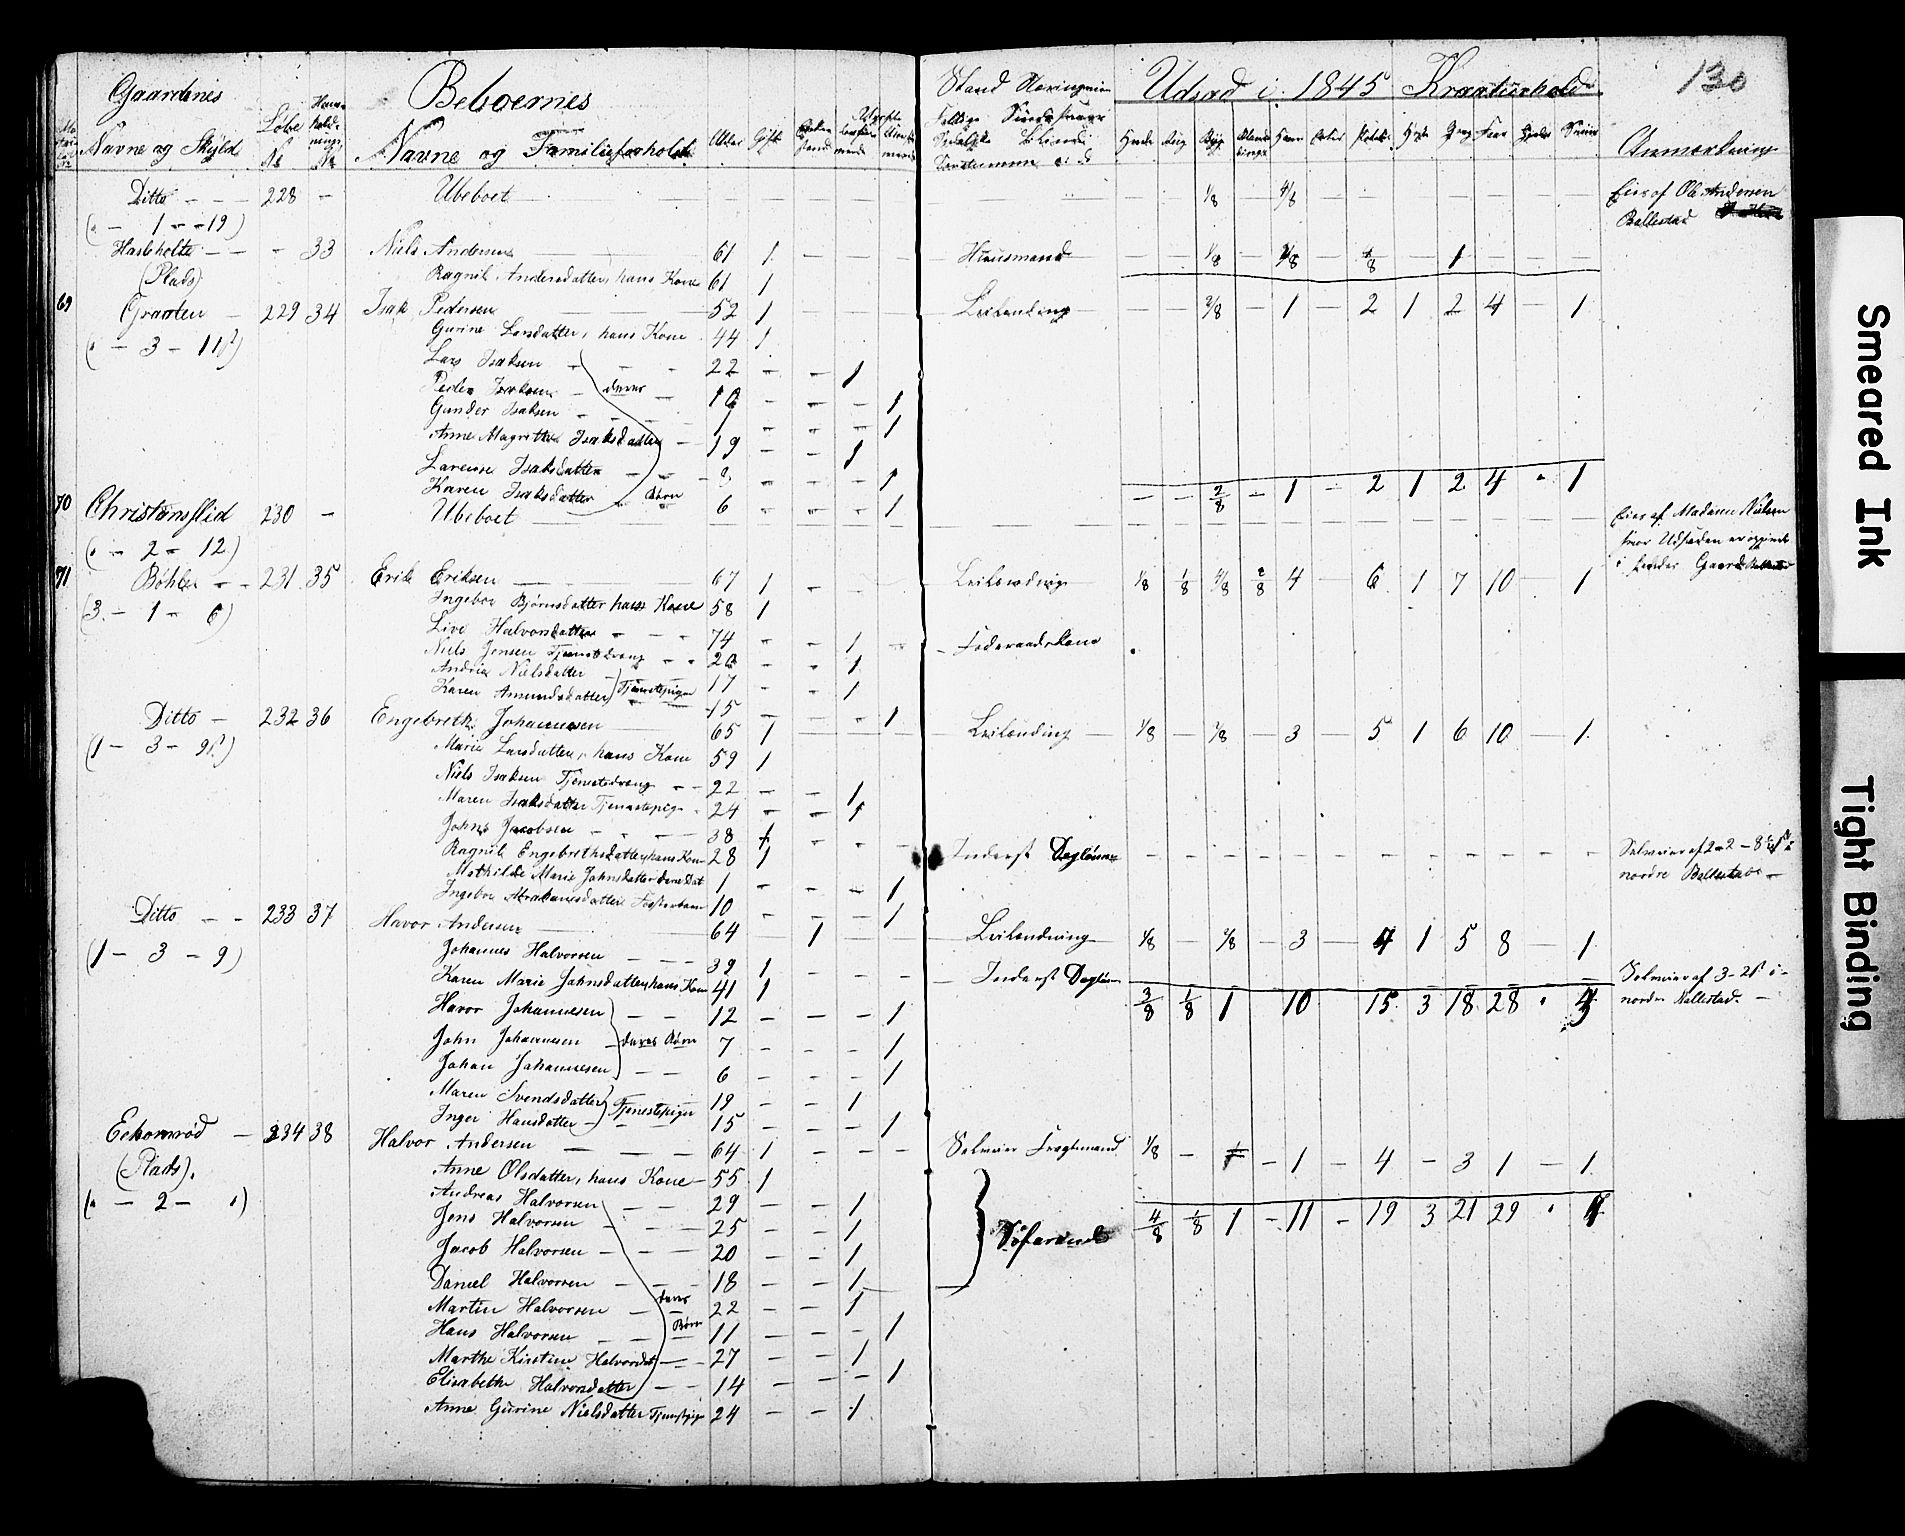 130
Gaardenes Navne og Skyld Løbe No Huusholdnings No
Beboernes Navne og Familieforhold Alder Gift
Stand Næringsvei
Udsæd i 1845 Kreaturhold
Hvede Rug Byg Havre Erter Heste Faar Sviin
Anmærkning
Ditto - - - 228 - Ubeboet 1/8 - 4/8 Eies af Ole Andersen
(" - 1 - - 19) Ballestad
Hasleholte - - - 33 Niels Andersen 61 1 - - - - Huusmand - - 1/8 - 4/8 - 4/8 - 1 - - -
(Plads) Ragnil Andersdatter, hans Kone 61 1
69 Graaten - 229 34 Isak Pedersen 52 1 - - - - Leilending - - 2/8 - 1 - 2 1 2 4 - 1
(" - 3 - 11) Gurine Larsdatter, hans Kone 44 1
Lars Isaksen - - - 22 - - 1
Peder Isaksen - deres - 10 - - - 1
Gunder Isaksen - - - 1 - - - 1
Anne Magrethe Isaksdatter - 19 - - 1
Larense Isaksdatter - - 3 - - - 1
Karen Isaksdatter - Børn 6 - - - 1 - - 2/8 - 1 - 2 1 2 4 " 1
70 Christensslid 230 - Ubeboet Eies af Madam Nielsen
(" - 2 - 12) hvor Udsæden er opgivet
71 Bøhler - - 231 35 Erik Eriksen 67 1 - - - - Leilending 1/8 1/8 4/8 2/8 4 - 6 1 7 10 - 1
(3 - 1 - 6) Ingebor Bjørnsdatter hans Kone 58 1
Live Halvorsdatter - - - 74 - - 1 - Foderaadskone
Niels Jensen Tjenestedreng - - 20 - - 1
Andrea Nielsdatter - 17 - - 1
Karen Amundsdatter Tjenestepiger 15 - - - 1
Ditto - 232 36 Engebreth Johannesen 65 1 Leilending 1/8 - 2/8 - 3 - 5 1 6 10 - 1
(1 - 3 - 9) Marie Larsdatter, hans Kone 59 1
Niels Isaksen Tjenestedreng - - 22 - - 1
Maren Isaksdatter Tjenestepige - 24 - - 1
Johns Jacobsen - - - 38 1 - - - Inderst Dagløner - - - - - - - - - - - - Selveier af 2 - 2 - 8
Ragnil Engebrethsdatter, hans Kone 28 1 nordre Ballestad -
Mathilde Marie Johnsdatter deres Dat 1 - - - 1
Ingebor Abrahamsdatter Fosterbarn 10 - - - 1
Ditto - - 233 37 Havor Andersen 64 - 1 - - Leilending 1/8 - 2/8 - 3 - 4 1 5 8 - 1
(1 - 3 - 9) Johannes Halvorsen - - - 39 1 - - - - Inderst Dagløner Selveier af 3 - 21 i
Karen Marie Johnsdatter, hans Kone 41 1 3/8 1/8 1 10 15 3 18 28 " nordre Ballestad. -
Havor Johannesen - - 12 - - - 1
John Johannesen - deres Børn 7 - - - 1
Johan Johannesen - - 6 - - - 1
Maren Svendsdatter 19 - - 1
Inger Hansdatter - Tjenestepiger 15 - - - 1
Eekornrød - 234 38 Halvor Andersen - - - 64 1 - - - Selveier Fragtmand 1/8 - - 1 - 4 - 3 1 - 1
(Plads). Anne Olsdatter, hans Kone - 55 1
(" - 2 - ") Andreas Halvorsen - - 29 - - 1
Jens Halvorsen - - - 25 - - 1 Søfarende 4/8 1/8 1 - 11 - 19 3 21 29 "
Jacob Halvorsen - - - 20 - - 1
Daniel Halvorsen - - - 18 - - 1
Martin Halvorsen - deres 22 - - 1
Hans Halvorsen - - Børn 11 - - - 1
Marthe Kirstine Halvorsdat - - 27 - - 1
Elisabethe Halvorsdatter - - 14 - - - 1
Anne Gurine Nielsdatter Tjenestpige 24 - - 1
Smeared Ink
Tight Binding